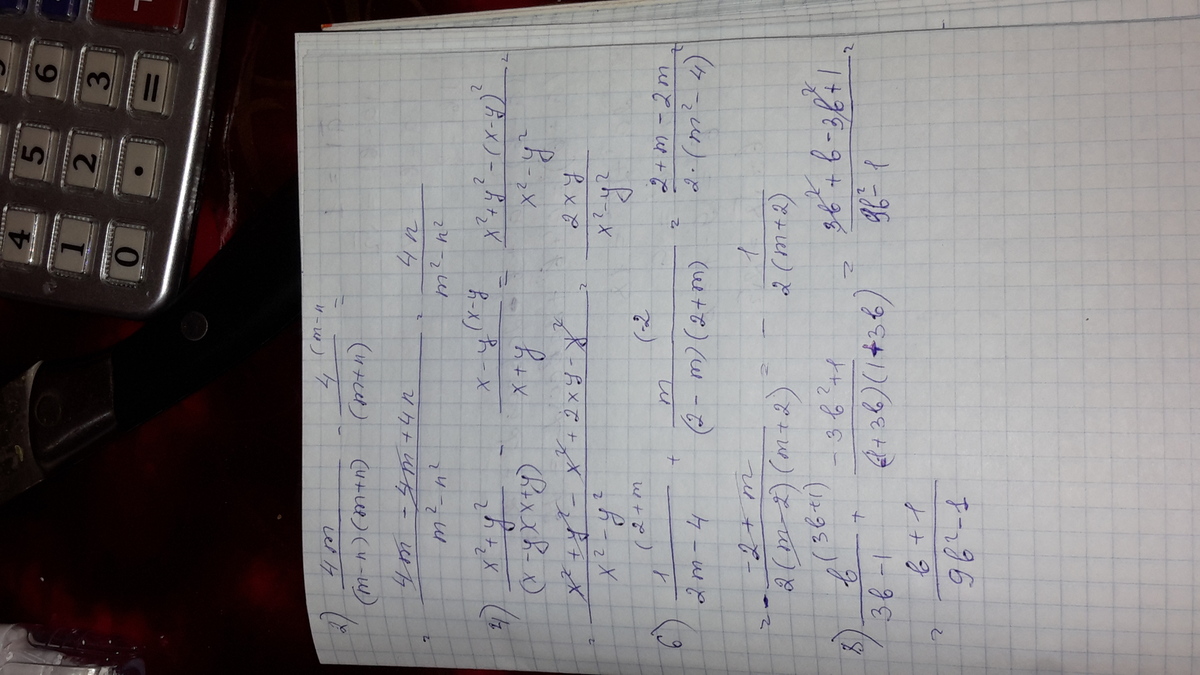 2) 4m/((m-n)(m+n)) - 4 (m-n/(m+n) =
= (4m - 4m + 4n)/(m² - n²) = 4n/(m² - n²)
4) (x² + y²)/((x-y)(x+y)) - x-y (x-y/(x+y) = (x² + y² - (x-y)²)/(x² - y²) =
= (x² + y² - x² + 2xy - y²)/(x² - y²) = 2xy/(x² - y²)
6) 1 (2+m/(2m - 4) + m (-2/((2-m)(2+m)) = (2 + m - 2m)/(2·(m² - 4)) =
= - (-2 + m)/(2(m-2)(m+2)) = - 1/(2(m+2))
8) b (3b+1)/(3b-1) + (-3b² + 1)/((1+3b)(1+3b)) = (3b² + b - 3b² + 1)/(9b² - 1) =
= (b + 1)/(9b² - 1)
6
3
=
5
2
.
4
1
0